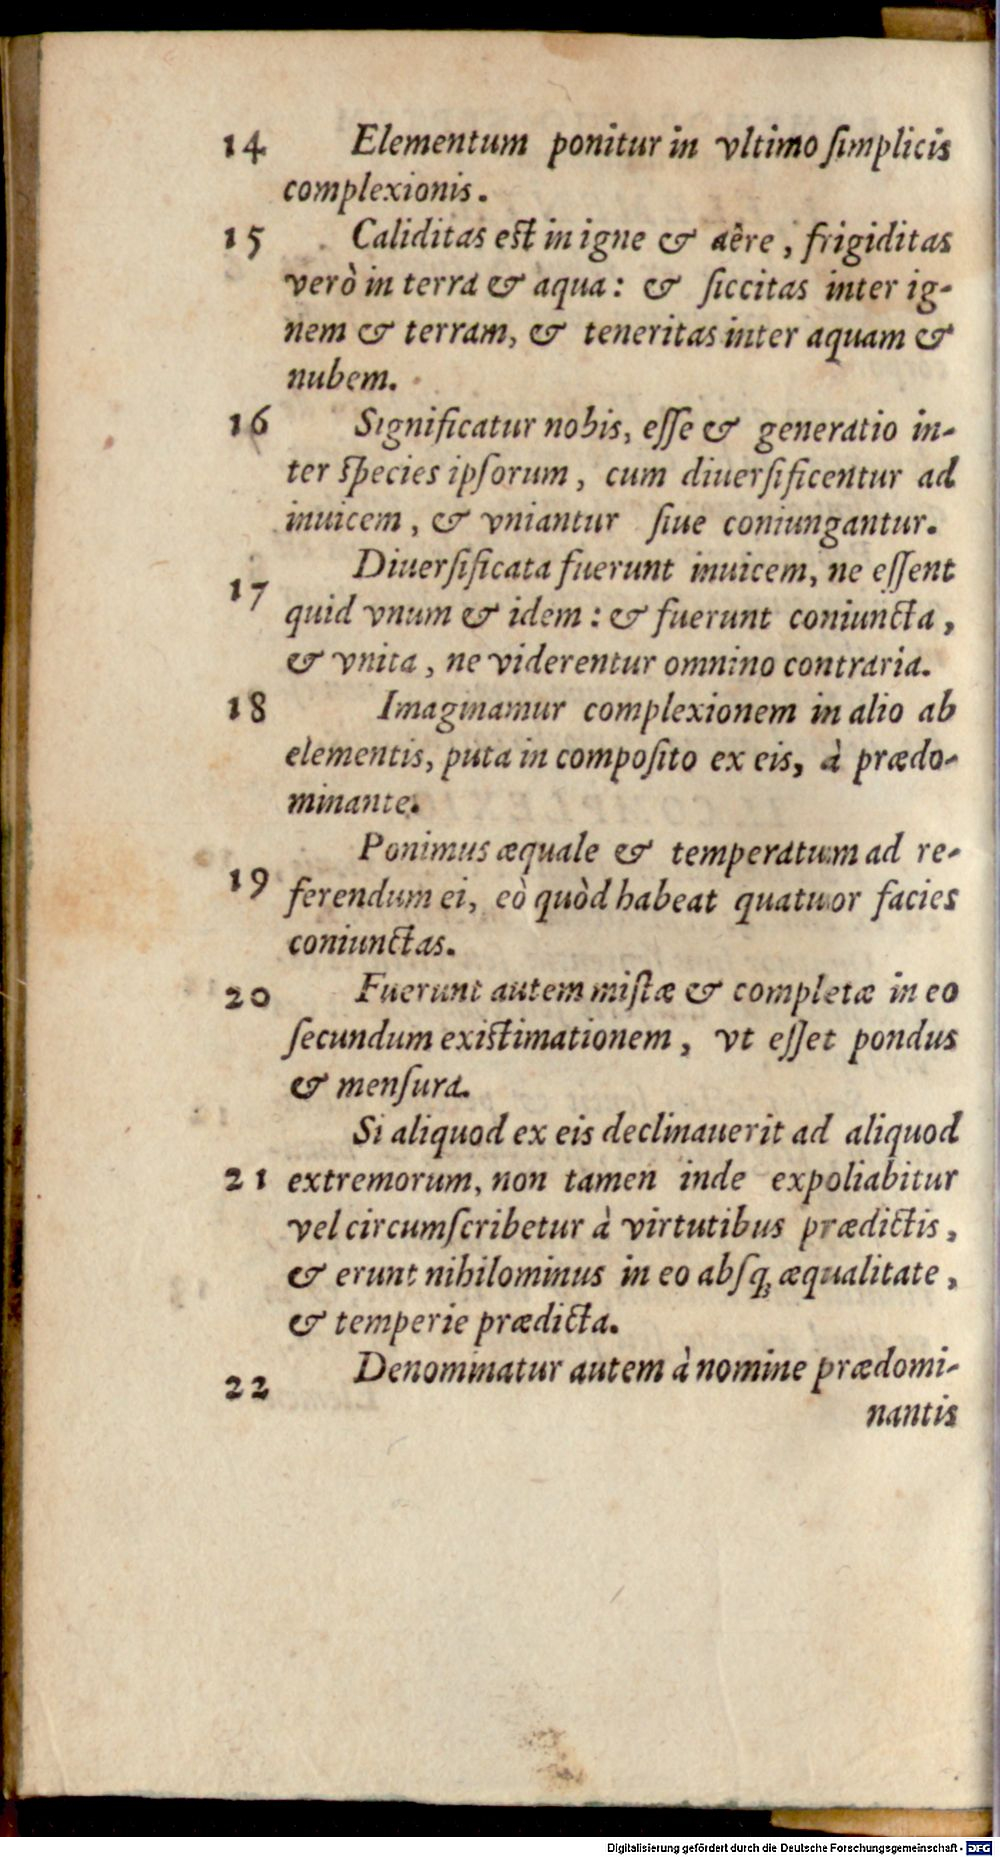 14 Elementum ponitur in vltimo ſimplicis
complexionis.
15 Caliditas eſt in igne & aëre, frigiditas
verò in terra & aqua: & ſiccitas inter ig-
nem & terram, & teneritas inter aquam &
nubem.
16 Significatur nobis, eſſe & generatio in-
ter ſpecies ipſorum, cum diuerſificentur ad
inuicem, & vniantur ſiue coniungantur.
17 Diuerſificata fuerunt inuicem, ne eſſent
quid vnum & idem: & fuerunt coniuncta,
& vnita, ne viderentur omnino contraria.
18 Imaginamur complexionem in alio ab
elementis, puta in compoſito ex eis, à prædo-
minante.
19 Ponimus æquale & temperatum ad re-
ferendum ei, eò quòd habeat quatuor facies
coniunctas.
20 Fuerunt autem miſtæ & completæ in eo
ſecundum exiſtimationem, vt eſſet pondus
& menſura.
Si aliquod ex eis declinauerit ad aliquod
21 extremorum, non tamen inde expoliabitur
vel circumſcribetur à virtutibus prædictis,
& erunt nihilominus in eo abſq; æqualitate,
& temperie prædicta.
22 Denominatur autem à nomine prædomi-
nantis
Digitalisierung gefördert durch die Deutsche Forschungsgemeinschaft - DFG